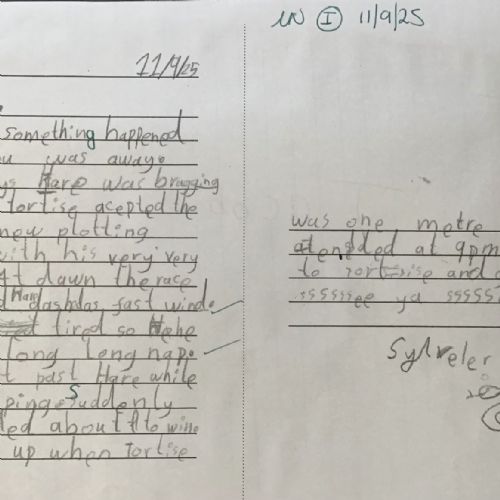 11/9/25
something happened
u was away.
ys Hare was bragging
tortise acepted the
now plotting
with his very very
At dawn the race
d Hare dashdas fast wind.
tired so Hehe
long Leng nap.
t past Hare while
ping. Suddenly
led about to wine
up when Tortise
IN I 11/9/25
was one metre
atended at 9pm
to Tortise and
ssssssee ya sssss